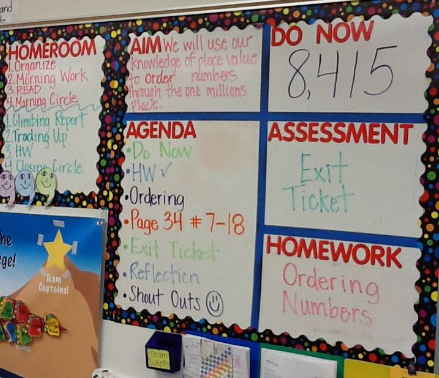 and
HOMEROOM
1. Organize
2. Morning Work
3. READ
4. Morning Circle
1. Climbing Report
2. Trading Up
3. HW
4. Closing Circle
AIM We will use our
knowledge of place value
to order numbers
through the one millions
place.
DO NOW
8,415
AGENDA
• Do Now
• HW ✓
• Ordering
• Page 34 # 7-18
• Exit Ticket
• Reflection
• Shout Outs ☺
ASSESSMENT
Exit
Ticket
HOMEWORK
Ordering
Numbers
the
ge!
Team
Captains!